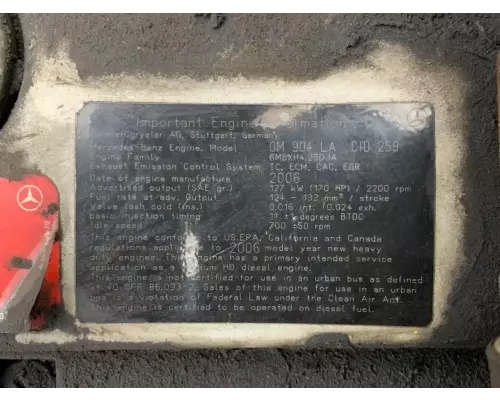 Important Engine Information
DaimlerChrysler AG, Stuttgart, Germany
Mercedes-Benz Engine, Model OM 904 LA CID 259
Engine Family 6MBXH4.25DJA
Exhaust Emission Control System TC, ECM, CAC, EGR
Date of engine manufacture 2006
Advertised output (SAE gr.) 127 kW (170 HP) / 2200 rpm
Fuel rate at adv. Output 124 - 132 mm³ / stroke
Valve lash cold (ins.) 0.016 int. 0.024 exh.
basic injection timing 11 ±1 degrees BTDC
Idle speed 700 ±50 rpm
This engine conforms to US.EPA, California and Canada
regulations applicable to 2006 model year new heavy
duty engines. This engine has a primary intended service
application as a medium HD diesel engine.
This engine is not certified for use in an urban bus as defined
at 40 CFR 86.093-2. Sales of this engine for use in an urban
bus is a violation of Federal Law under the Clean Air Act.
This engine is certified to be operated on diesel fuel.